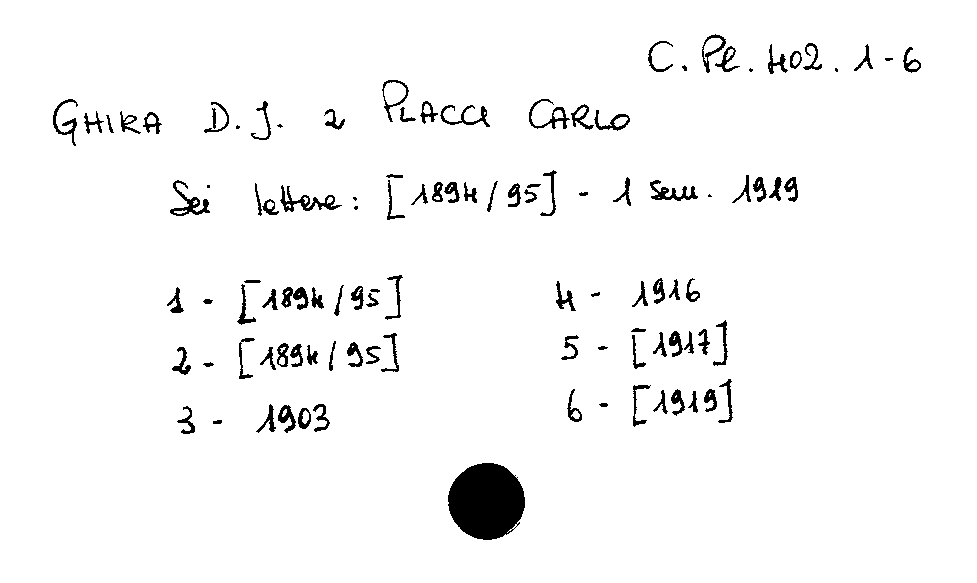 C. Pl. 402. 1-6
GHIKA D. J. a PLACCI CARLO
Sei lettere: [1894/95] - 1 sem. 1919
1 - [1894/95]
2 - [1894/95]
3 - 1903
4 - 1916
5 - [1917]
6 - [1919]